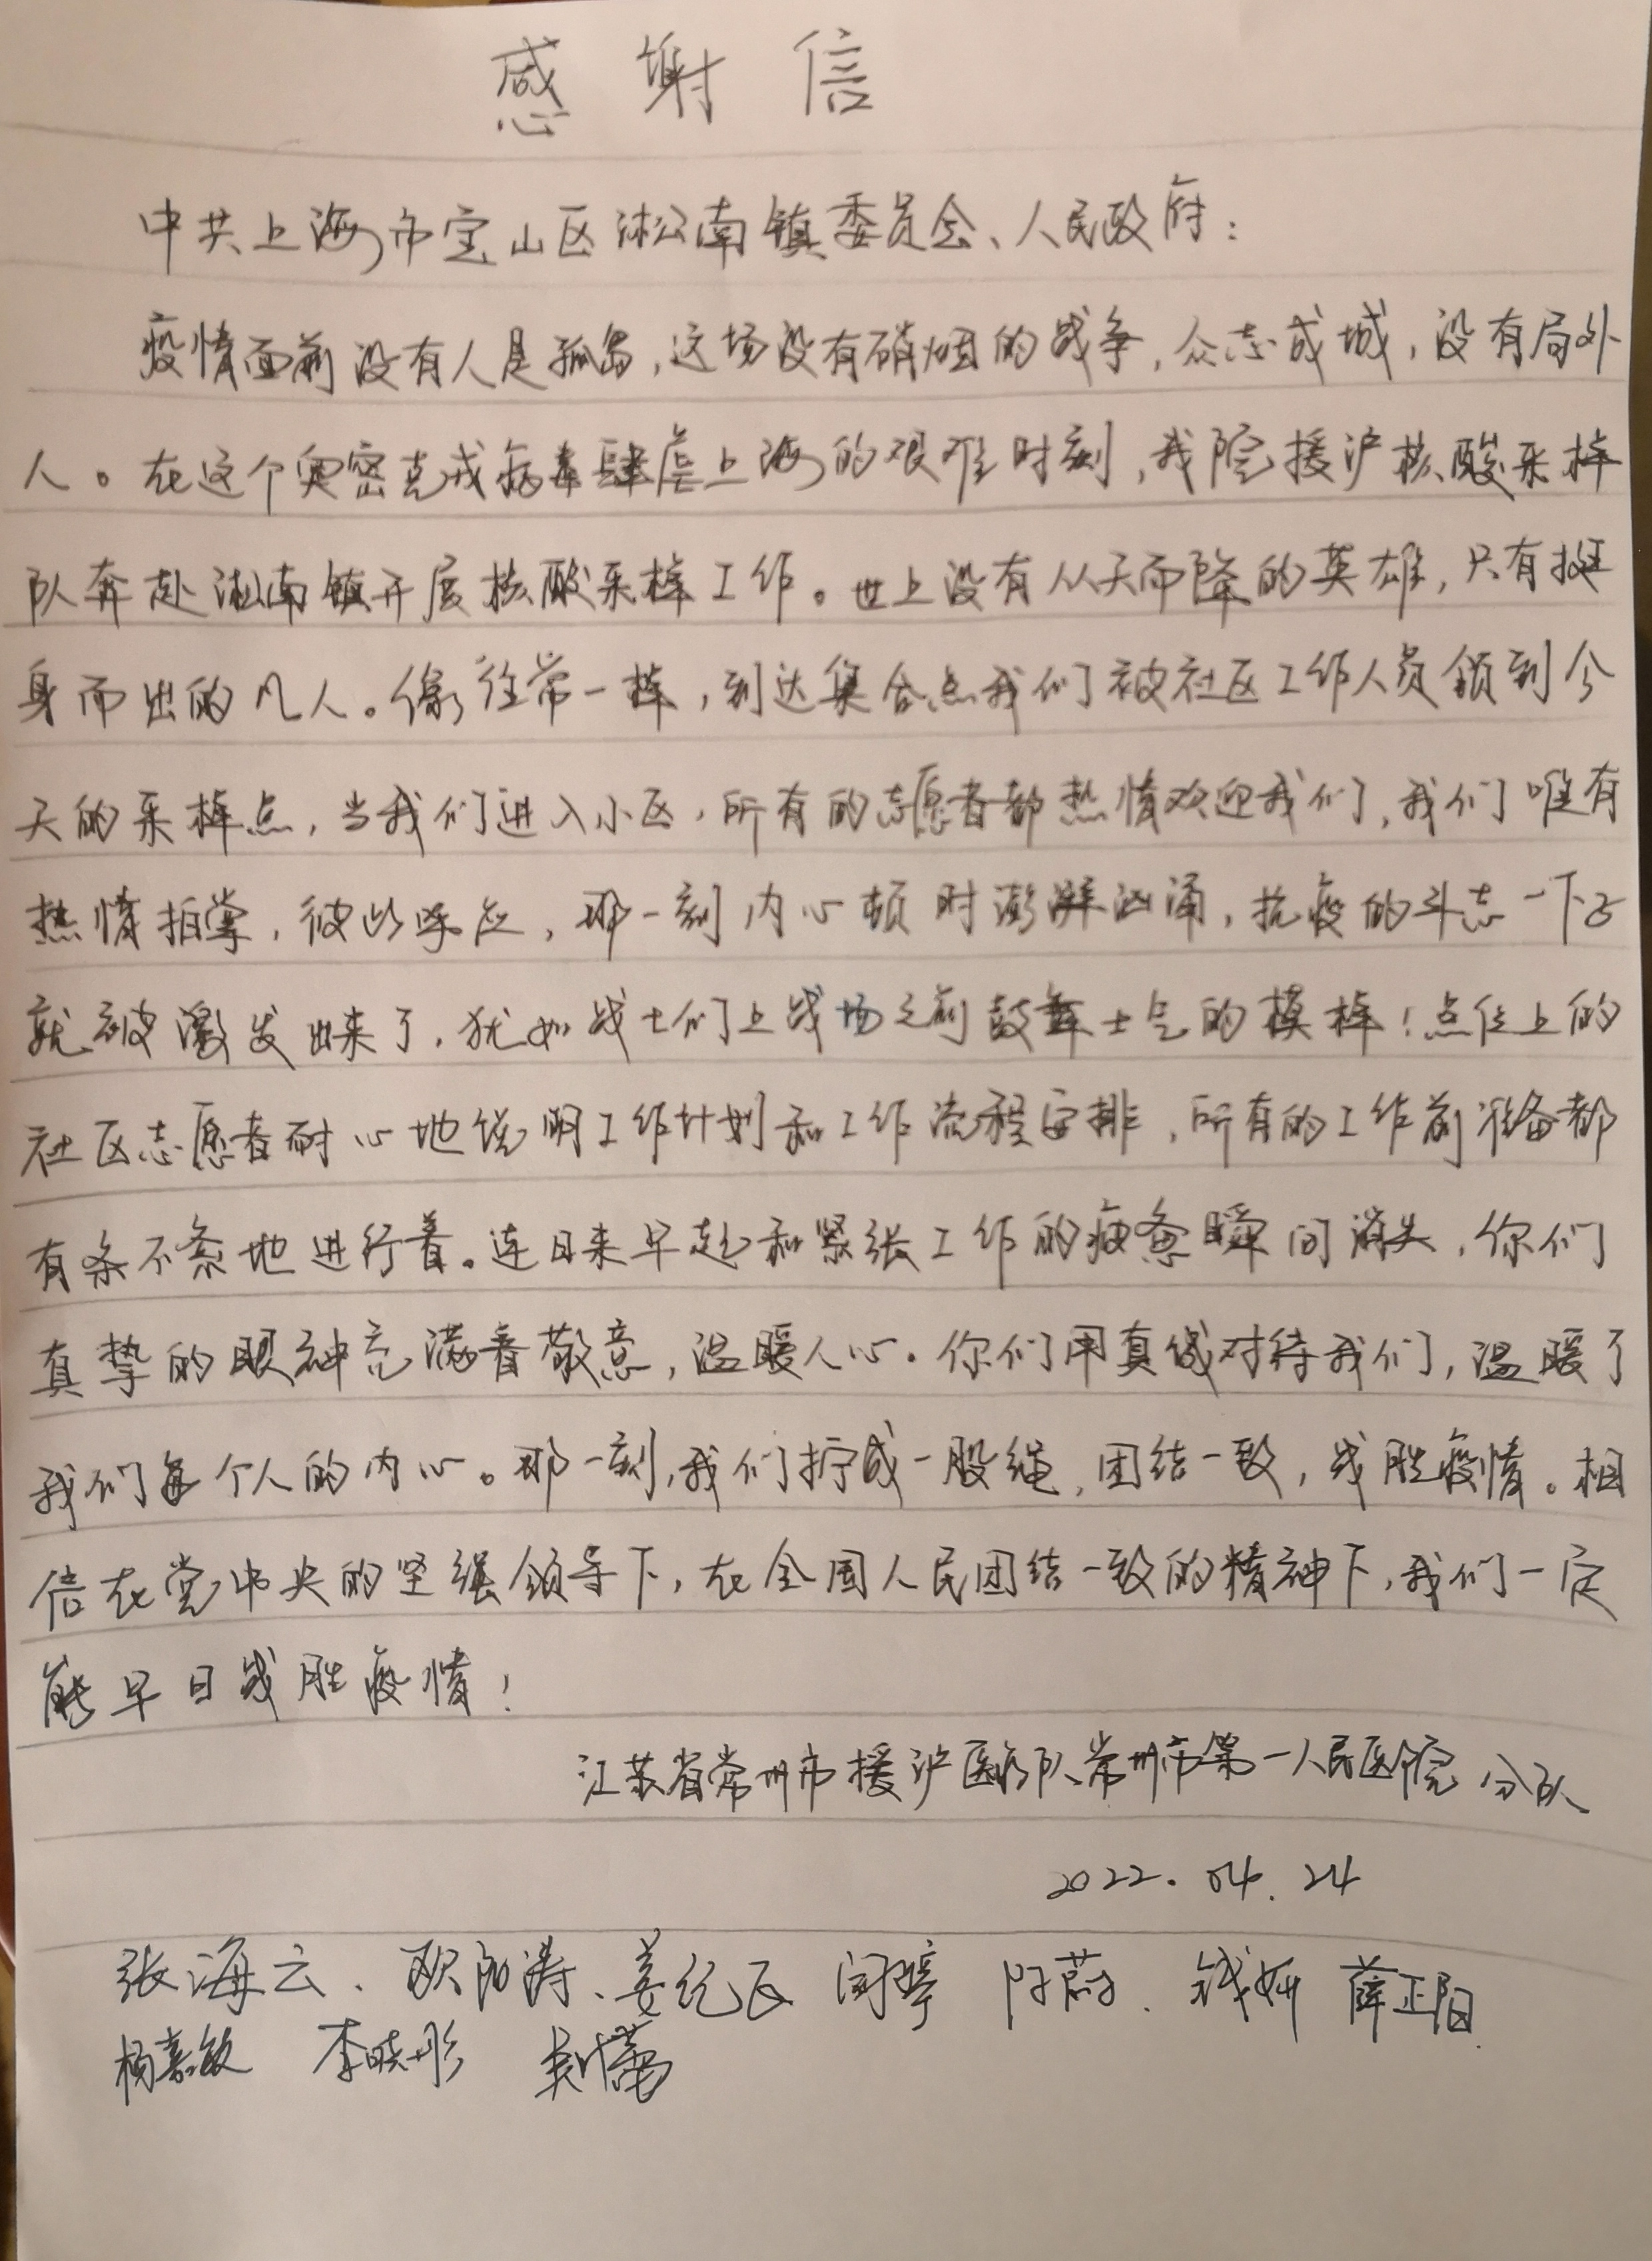 感谢信
中共上海市宝山区淞南镇委员会、人民政府：
疫情面前没有人是孤岛，这场没有硝烟的战争，众志成城，没有局外
人。在这个奥密克戎病毒肆虐上海的艰难时刻，我院援沪核酸采样
队奔赴淞南镇开展核酸采样工作。世上没有从天而降的英雄，只有挺
身而出的凡人。像往常一样，到达集合点我们被社区工作人员领到今
天的采样点，当我们进入小区，所有的志愿者都热情欢迎我们，我们唯有
热情拍掌，彼此呼应，那一刻内心顿时澎湃汹涌，抗疫的斗志一下子
就被激发出来了，犹如战士们上战场之前鼓舞士气的模样！点位上的
社区志愿者耐心地说明工作计划和工作流程安排，所有的工作前准备都
有条不紊地进行着。连日来早起和紧张工作的疲惫瞬间消失，你们
真挚的眼神充满着敬意，温暖人心。你们用真诚对待我们，温暖了
我们每个人的内心。那一刻，我们拧成一股绳，团结一致，战胜疫情。相
信在党中央的坚强领导下，在全国人民团结一致的精神下，我们一定
能早日战胜疫情！
江苏省常州市援沪医疗队常州市第一人民医院分队
2022.04.24
张海云、欧阳涛、姜纪 闵婷 陈蔚、钱妍 薛正阳
杨嘉敏 李晓彤